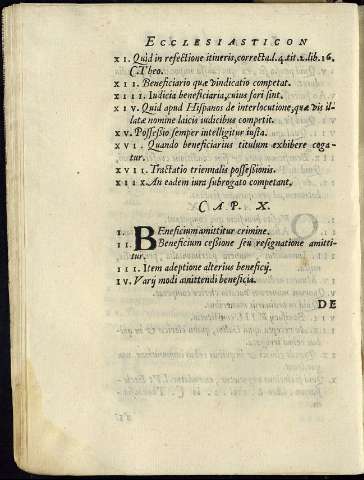 ECCLESIASTICON
XI. Quid in refectione itineris, correcta d.4. tit.2. lib.16.
C. Theo.
XII. Beneficiario quæ vindicatio competat.
XIII. Iudicia beneficiaria, cuius fori sint.
XIV. Quid apud Hispanos de interlocutione, quæ vis il-
latæ nomine laicis iudicibus competit.
XV. Possessio semper intelligitur iusta.
XVI. Quando beneficiarius titulum exhibere coga-
tur.
XVII. Tractatio triennalis possessionis.
XIIX. An eadem iura subrogato competant.
CAP. X.
I. BEneficium amittitur crimine.
II. Beneficium cessione seu resignatione amitti-
tur.
III. Item adeptione alterius beneficij.
IV. Varij modi amittendi beneficia.
DE